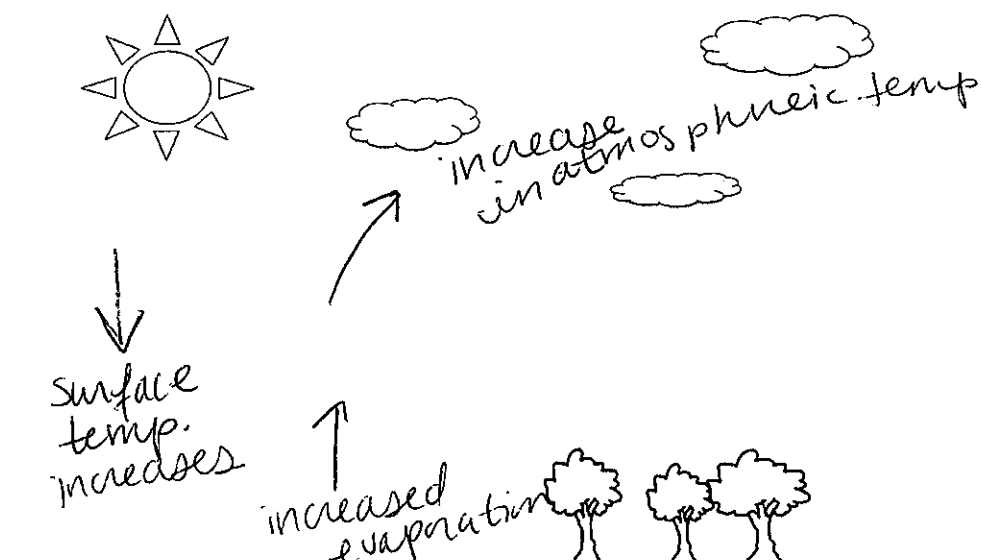 increase
in atmosphneic temp
surface
temp.
increases
increased
evaporation